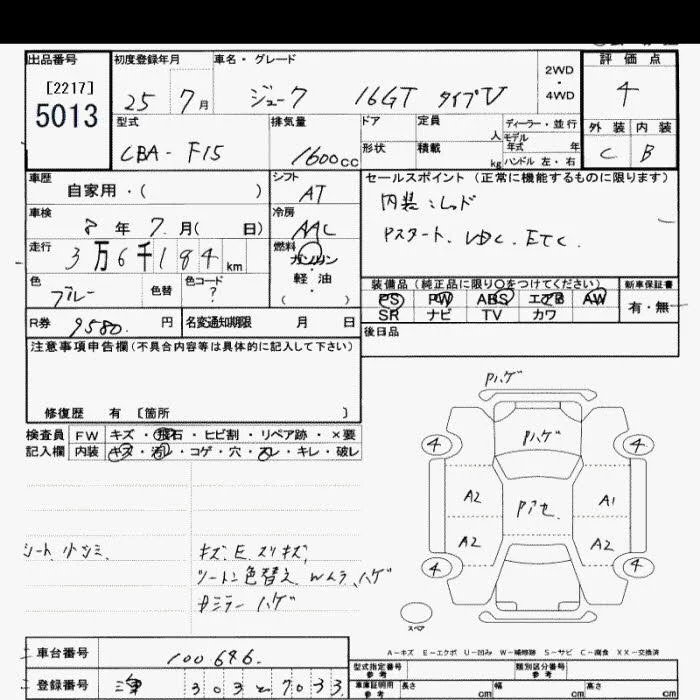 出品番号 初度登録年月 車名・グレード 2WD・4WD 評価点
[2217]
5013 25 7月 ジューク 16GT タイプV 4
型式 排気量 ドア 定員 人 ディーラー・並行 外装 内装
CBA-F15 1600cc 形状 積載 kg モデル年式 年 ハンドル 左・右 C B
車歴 自家用・( ) シフト AT セールスポイント (正常に機能するものに限ります)
車検 8年 7月( 日) 冷房 AAC 内装:レッド
走行 3万6千184km 燃料 ガソリン・軽油・( ) Pスタート、VDC、ETC.
色 ブルー 色替 色コード ? 装備品 (純正品に限り○をつけてください) 新車保証書
PS PW ABS エアB AW 有・無
SR ナビ TV カワ
R券 9580. 円 名変通知期限 月 日 後日品
注意事項申告欄 (不具合内容等は具体的に記入して下さい)
修復歴 有 〔箇所 〕
検査員 FW キズ・飛石・ヒビ割・リペア跡・×要
記入欄 内装 キズ・汚レ・コゲ・穴・スレ・キレ・破レ
Pハゲ
Pハゲ
4 4
A2 Pアセ A1
A2 A2
4 4
シート小シミ、 キズ、E、スリキズ、
ツートン色替え、Wムラ、ハゲ
ハゲ
スペア
A-キズ E-エクボ U-凹み W-補修跡 S-サビ C-腐食 XX-交換済
車台番号 100646.
登録番号 303 7033
型式指定番号 参考 類別区分番号 参考
車庫証明用 参考 長さ cm 幅 cm 高さ cm